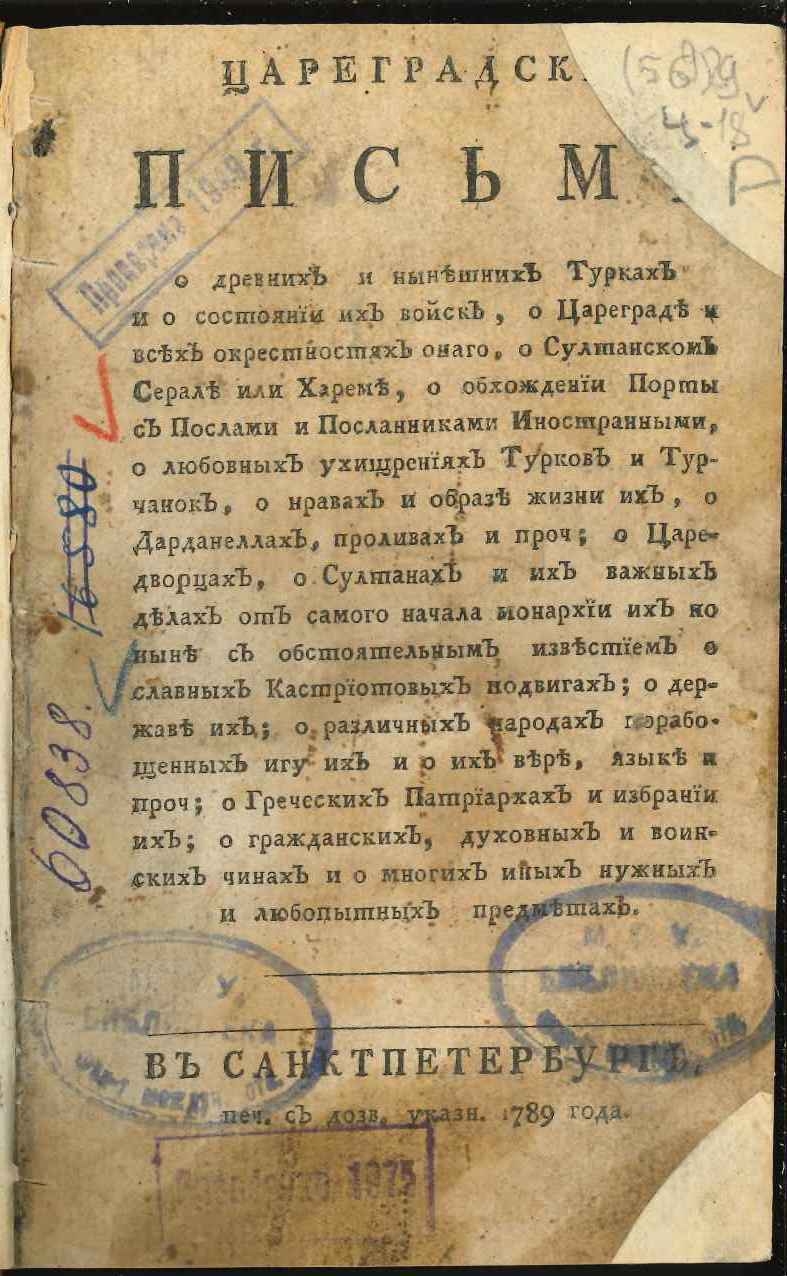 ЦАРЕГРАДСК
(56)9
4-18
ПИСЬМ
D
Проверена
о древнихЪ и нынѣшнихЪ ТуркахЪ
и о состоянїи ихЪ войскЪ, о Цареградѣ и
всѣхЪ окрестностяхЪ онаго, о СултанскомЪ
Сералѣ или Харемѣ, о обхожденїи Порты
сЪ Послами и Посланниками Иностранными,
о любовныхЪ ухищренїяхЪ ТурковЪ и Тур-
чанокЪ, о нравахЪ и образѣ жизни ихЪ, о
ДарданеллахЪ, проливахЪ и проч; о Царе-
дворцахЪ, о СултанахЪ и ихЪ важныхЪ
дѣлахЪ отЪ самого начала монархїи ихЪ по
нынѣ сЪ обстоятельнымЪ извѣстїемЪ о
славныхЪ КастрїотовыхЪ подвигахЪ; о дер-
жавѣ ихЪ; о различныхЪ народахЪ порабо-
щенныхЪ игу ихЪ и о ихЪ вѣрѣ, языкѣ и
проч; о ГреческихЪ ПатрїархахЪ и избранїи
ихЪ; о гражданскихЪ, духовныхЪ и воин-
скихЪ чинахЪ и о многихЪ иныхЪ нужныхЪ
и любопытныхЪ предмѣтахЪ.
16580
60838.
У.
БИБЛИОТЕКА
М. У.
БИБЛИОТЕКА
ВЪ САНКТПЕТЕРБУРГѢ,
печ. сЪ дозв. указн. 1789 года.
1975